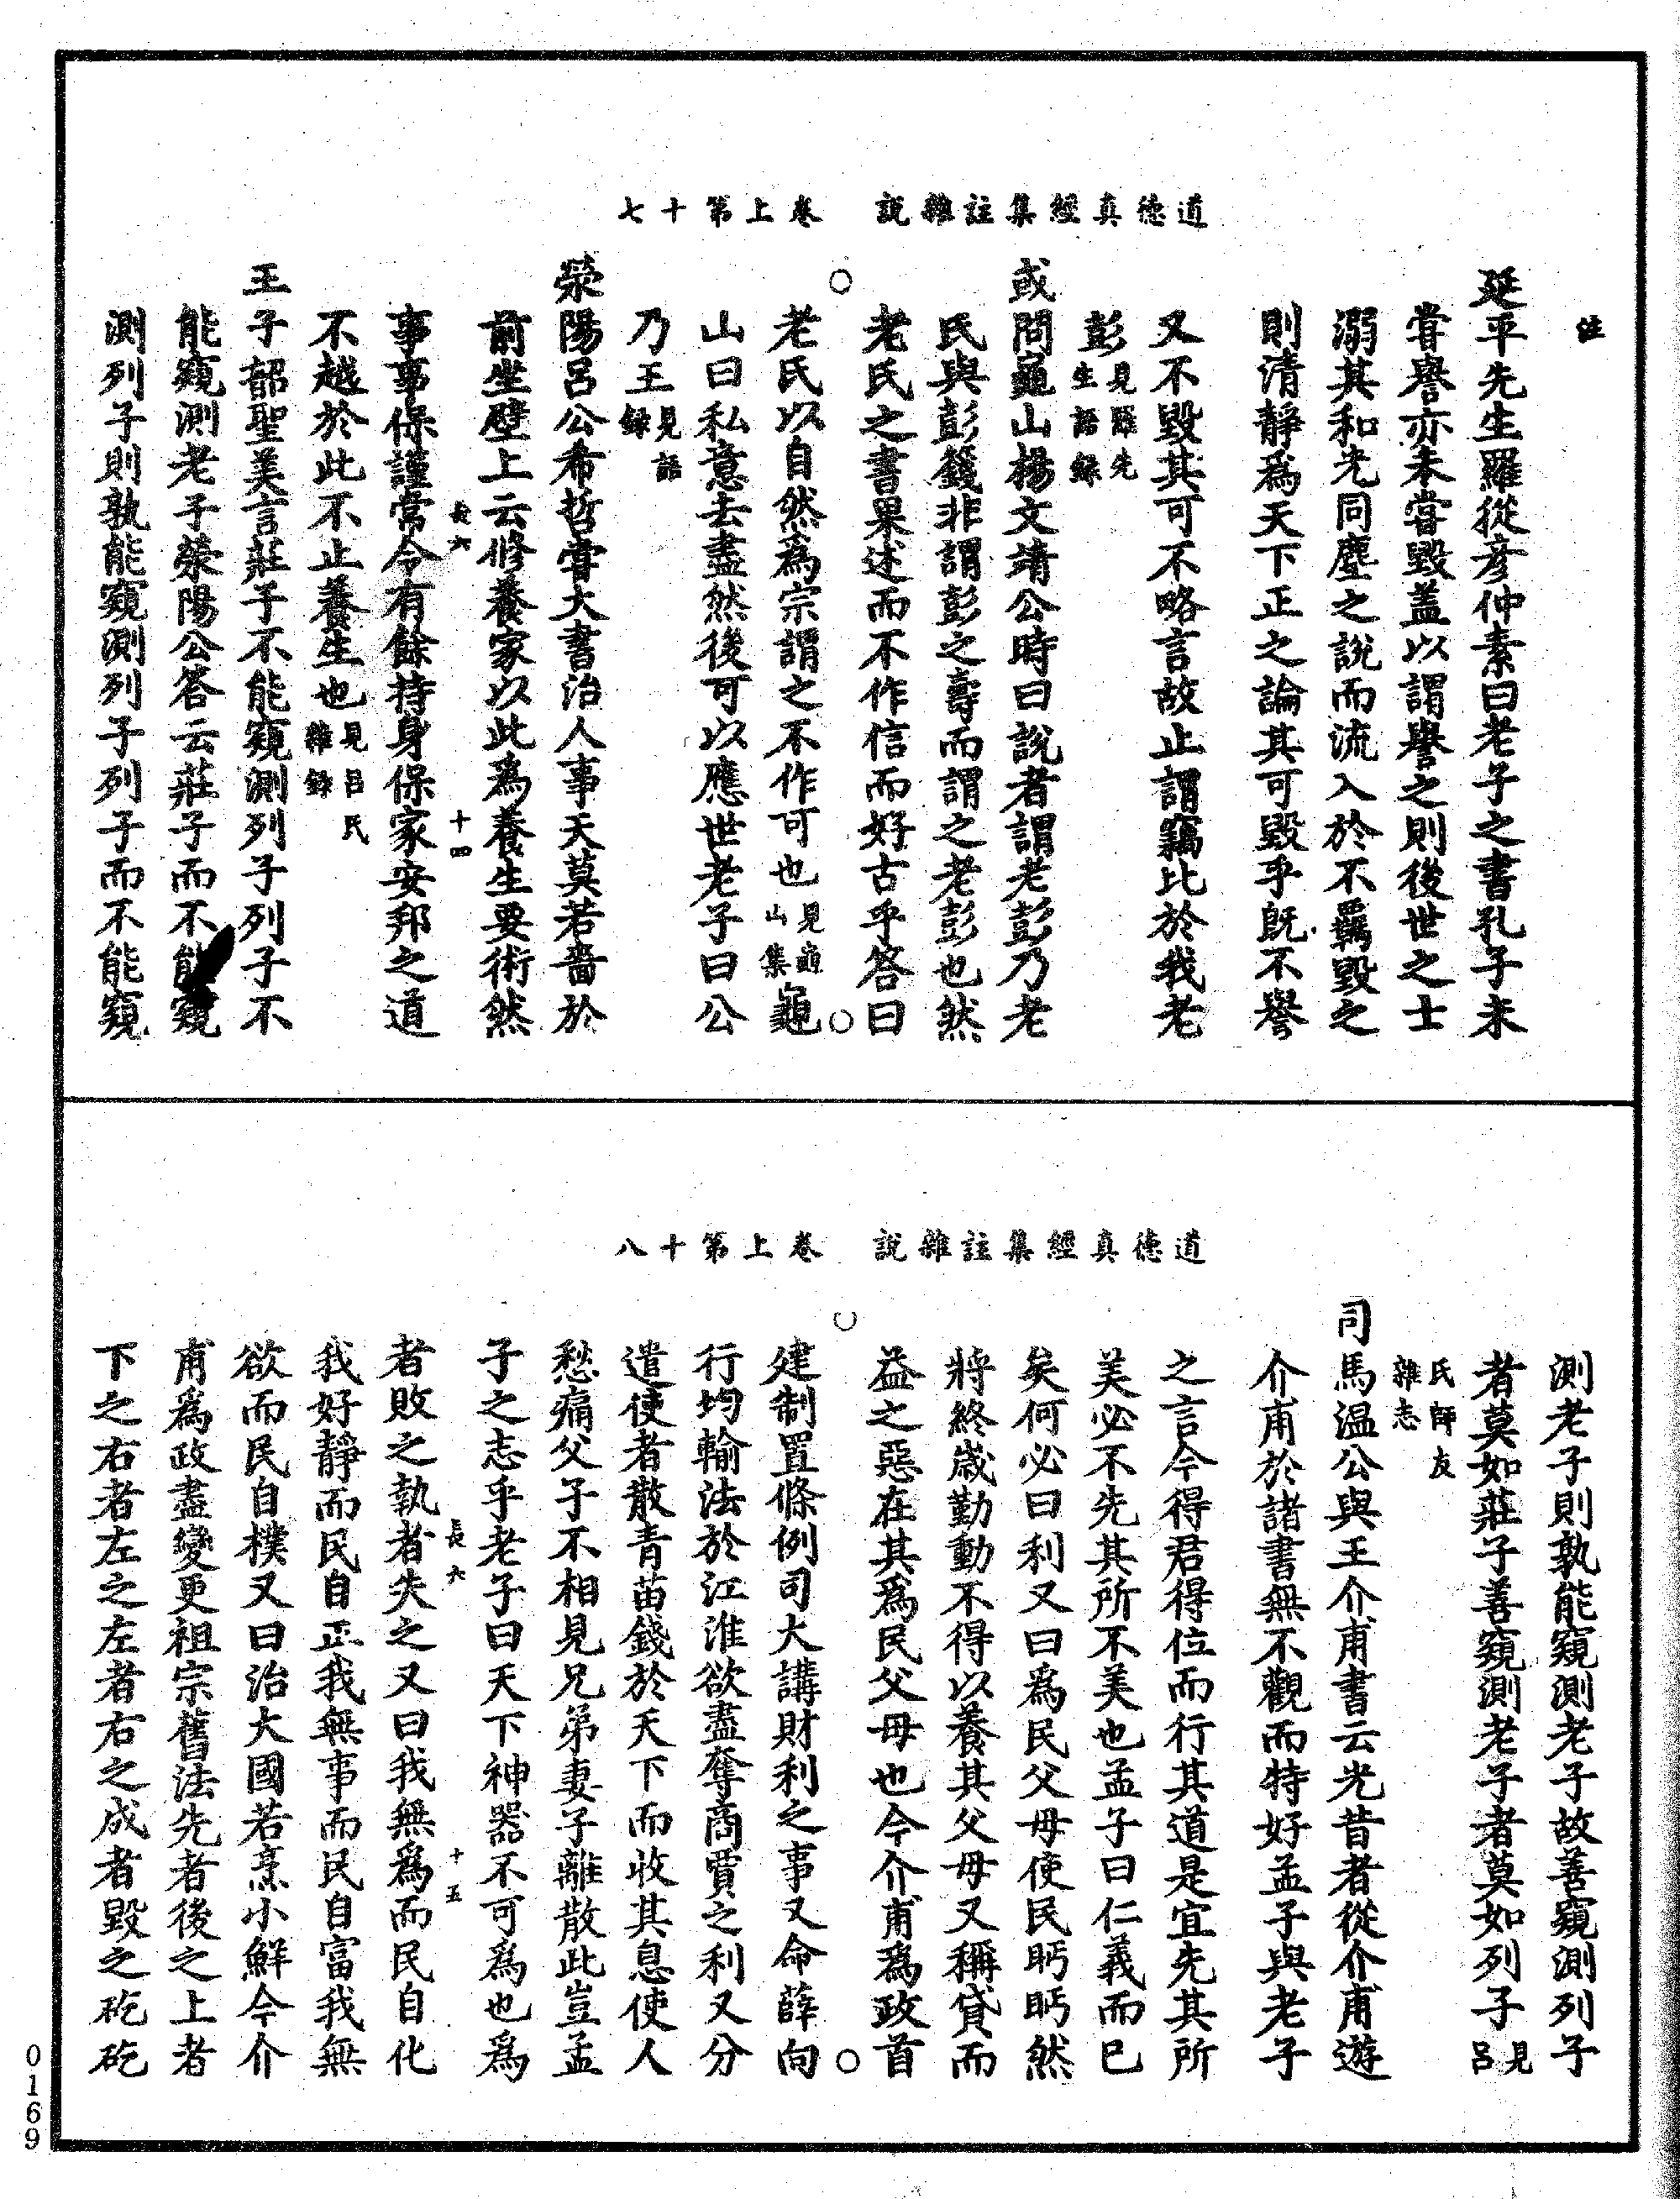 道德真經集註雜說　卷上第十七
注
延平先生羅從彥仲素曰老子之書孔子未
嘗譽亦未嘗毀蓋以謂譽之則後世之士
溺其和光同塵之說而流入於不羈毀之
則清靜爲天下正之論其可毀乎旣不譽
又不毀其可不略言故止謂竊比於我老
彭見羅先生語録
或問龜山楊文靖公時曰說者謂老彭乃老
氏與彭籛非謂彭之壽而謂之老彭也然
老氏之書果述而不作信而好古乎答曰
老氏以自然爲宗謂之不作可也見龜山集龜
山曰私意去盡然後可以應世老子曰公
乃王見語録
滎陽呂公希哲嘗大書治人事天莫若嗇於
前坐壁上云修養家以此爲養生要術然
長六　十四
事事保謹常令有餘持身保家安邦之道
不越於此不止養生也見呂氏雜録
王子韶聖美言莊子不能窺測列子列子不
能窺測老子滎陽公答云莊子而不能窺
測列子則孰能窺測列子列子而不能窺
道德真經集註雜說　卷上第十八
測老子則孰能窺測老子故善窺測列子
者莫如莊子善窺測老子者莫如列子見呂
氏師友雜志
司馬温公與王介甫書云光昔者從介甫遊
介甫於諸書無不觀而特好孟子與老子
之言今得君得位而行其道是宜先其所
美必不先其所不美也孟子曰仁義而已
矣何必曰利又曰爲民父母使民盻盻然
將終歲勤動不得以養其父母又稱貸而
益之惡在其爲民父母也今介甫爲政首
建制置條例司大講財利之事又命薛向
行均輸法於江淮欲盡奪商賈之利又分
遣使者散青苗錢於天下而收其息使人
愁痛父子不相見兄弟妻子離散此豈孟
子之志乎老子曰天下神器不可爲也爲
長六　十五
者敗之執者失之又曰我無爲而民自化
我好靜而民自正我無事而民自富我無
欲而民自樸又曰治大國若烹小鮮今介
甫爲政盡變更祖宗舊法先者後之上者
下之右者左之左者右之成者毀之矻矻
0169